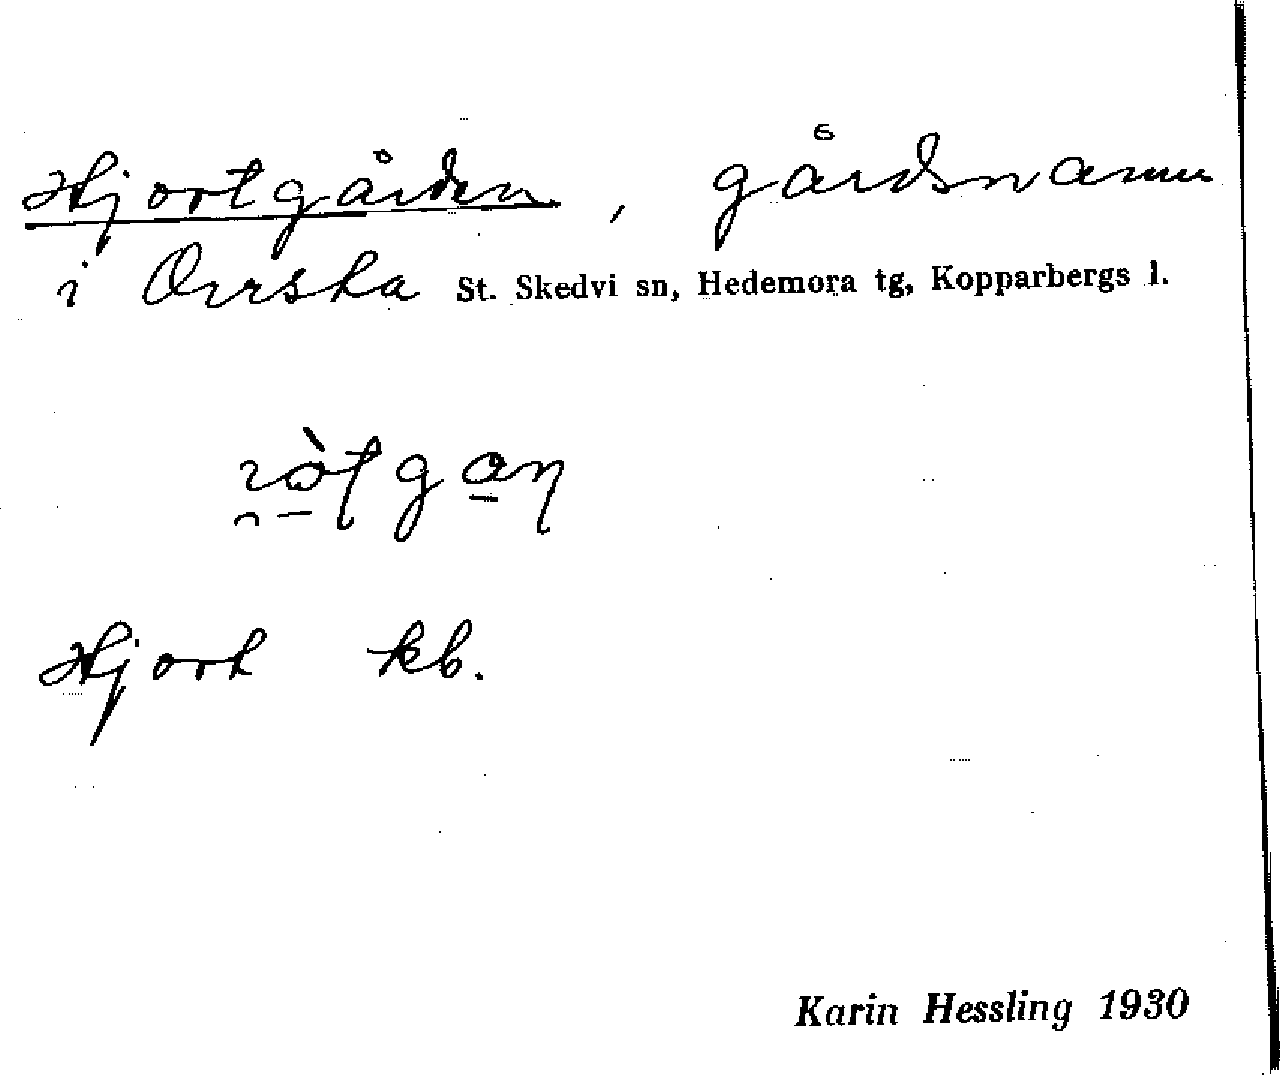 Hjortgården, gårdsnamn
i Orrska St. Skedvi sn, Hedemora tg, Kopparbergs l.
Hjort kb.
Karin Hessling 1930